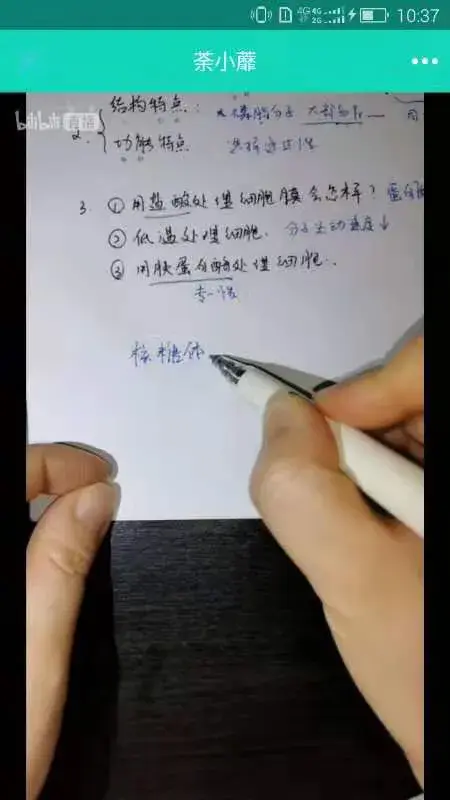 4G 4G
2G 10:37
荼小蘼
bilibili 直播
2. 结构特点: 磷脂分子
功能特点 选择透过性
3. ①用盐酸处理细胞膜会怎样? 蛋白
②低温处理细胞. 分子运动速度↓
③用胰蛋白酶处理细胞.
专一性
核糖体